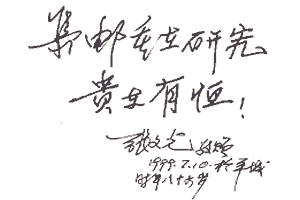 集邮重在研究
贵在有恒！
张文光
1999.7.10.于羊城
时年八十六岁